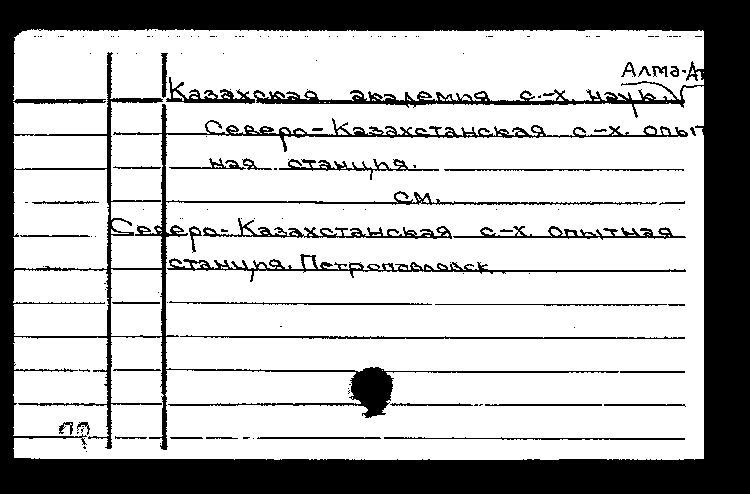 Алма-Ат
Казахская академия с.-х. наук.
Северо-Казахстанская с-х. опыт
ная станция.
см.
Северо-Казахстанская с-х. опытная
станция. Петропавловск.
пр